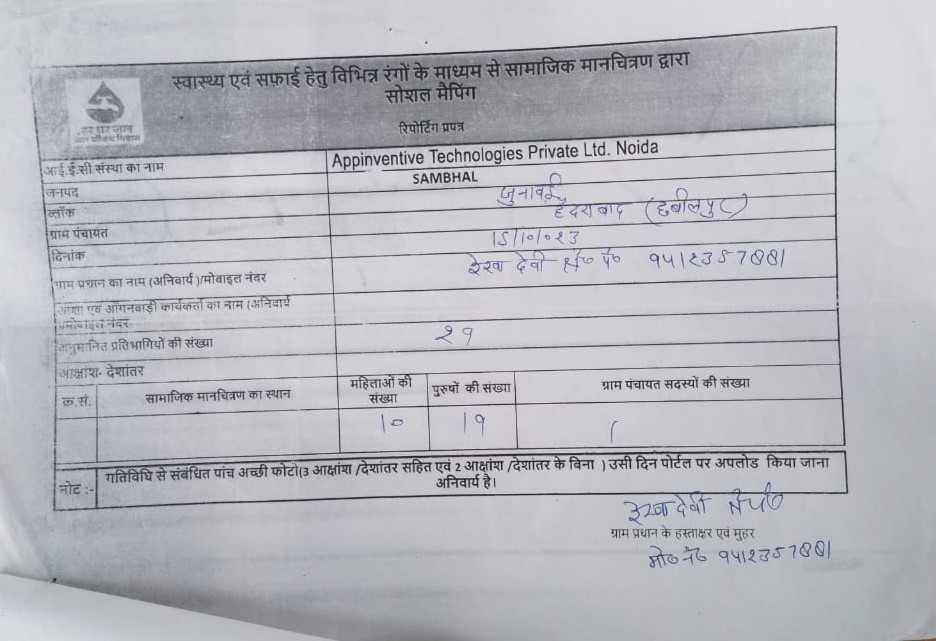 स्वास्थ्य एवं सफ़ाई हेतु विभिन्न रंगों के माध्यम से सामाजिक मानचित्रण द्वारा
सोशल मैपिंग
रिपोर्टिंग प्रपत्र
हर घर जल
आई.ई.सी संस्था का नाम Appinventive Technologies Private Ltd. Noida
जनपद SAMBHAL
ब्लॉक जुनावई
ग्राम पंचायत हैदराबाद
दिनांक 15/10/023
ग्राम प्रधान का नाम (अनिवार्य )/मोबाइल नंवर रेखा देवी
आशा एवं आँगनवाड़ी कार्यकर्ता का नाम (अनिवार्य
अनुमानित प्रतिभागियों की संख्या २९
आक्षांश- देशांतर
क्र.सं. सामाजिक मानचित्रण का स्थान महिलाओं की संख्या पुरुषों की संख्या ग्राम पंचायत सदस्यों की संख्या
10 19
नोट :- गतिविधि से संबंधित पांच अच्छी फोटो(3 आक्षांश /देशांतर सहित एवं 2 आक्षांश /देशांतर के बिना ) उसी दिन पोर्टल पर अपलोड किया जाना
अनिवार्य है।
रेखा देवी
ग्राम प्रधान के हस्ताक्षर एवं मुहर